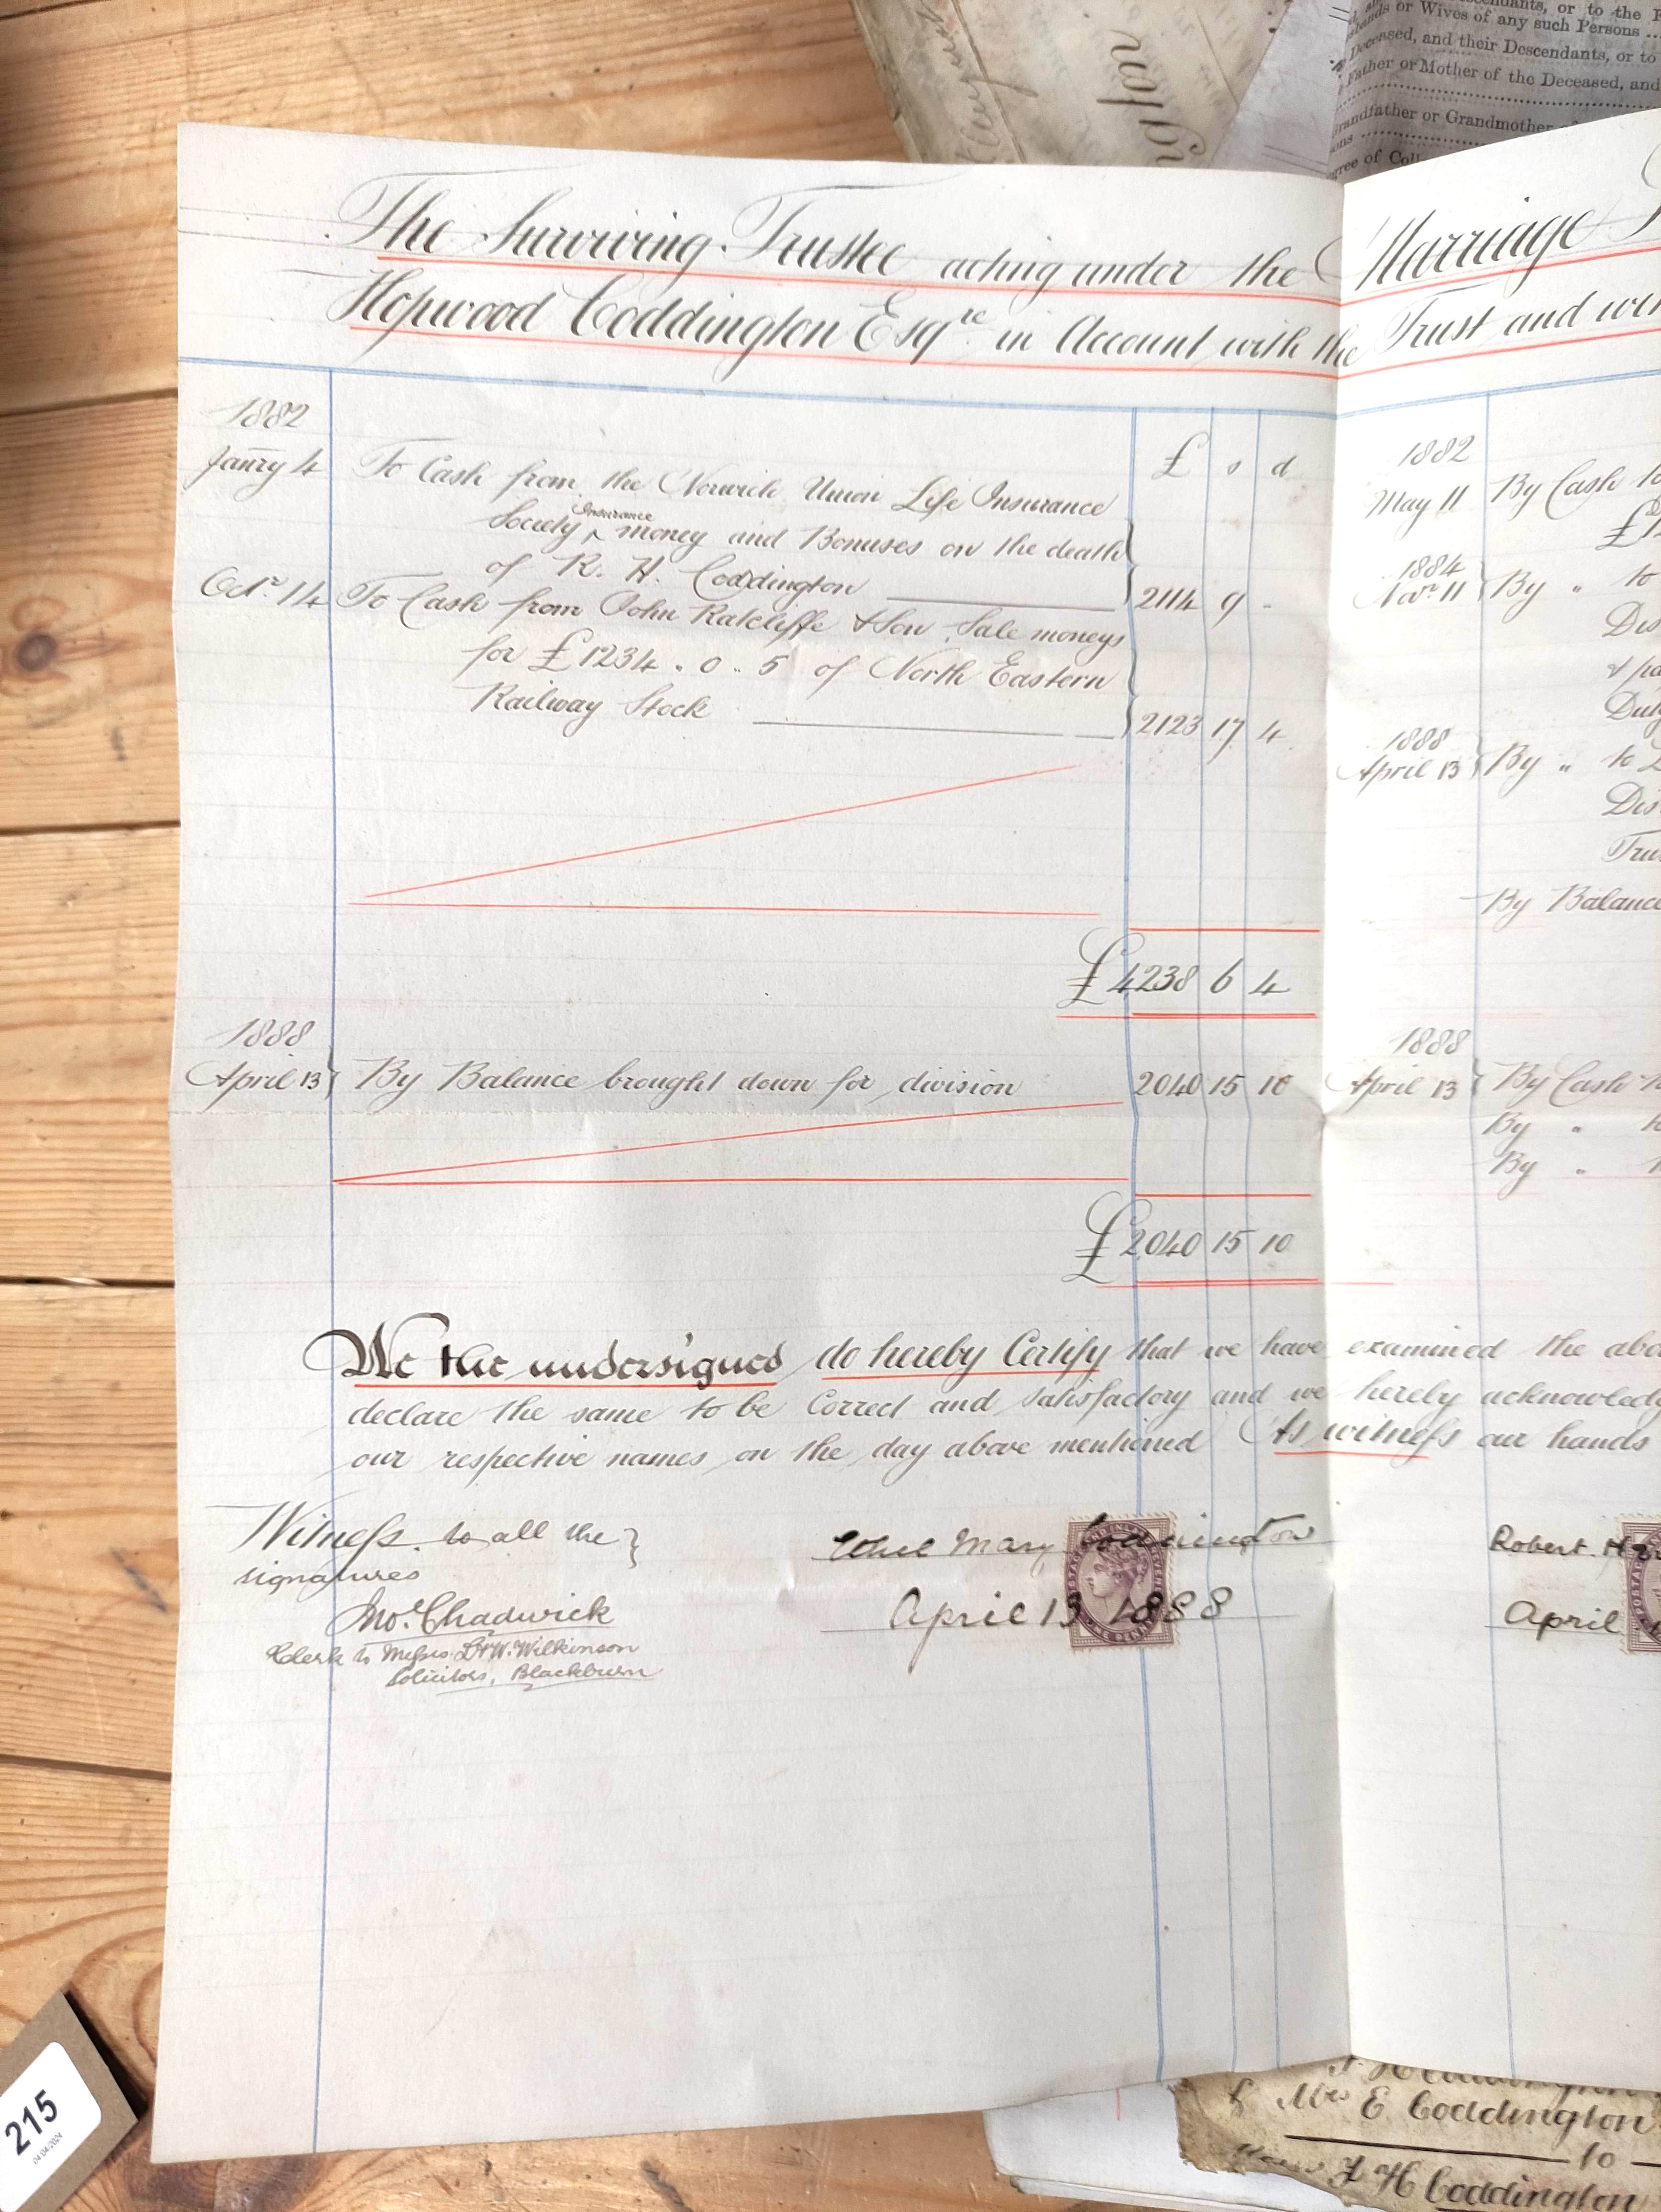 The Surviving Trustee acting under the Marriage
Hopwood Coddington Esqre in Account with the Trust and
1882
£ s d
Janry 4 To Cash from the Norwich Union Life Insurance
Society ^ Insurance money and Bonuses on the death
of R. H. Coddington 2114 9 -
Octr 14 To Cash from John Ratcliffe & Son Sale moneys
for £1234 . 0 . 5 of North Eastern
Railway Stock 2123 17 4
£4238 6 4
1888
April 13 By Balance brought down for division 2040 15 10
£2040 15 10
1882
May 11 By Cash to
1884
Novr 11 By " to
1888
April 13 By " to
By Balance
1888
April 13 By Cash
By "
By "
We the undersigned do hereby Certify that we have examined the
declare the same to be Correct and satisfactory and we hereby
our respective names on the day above mentioned As witness our hands
Witness to all the
signatures
Jno. Chadwick
Clerk to Messrs D & W. Wilkinson
Solicitors, Blackburn
Ethel Mary Coddington
April 13 1888
Robert
April
or Wives of any such Persons
Deceased, and their Descendants, or to
Father or Mother of the Deceased, and
Grandfather or Grandmother
Mrs E Coddington
to
H Coddington
215
04/04/2024